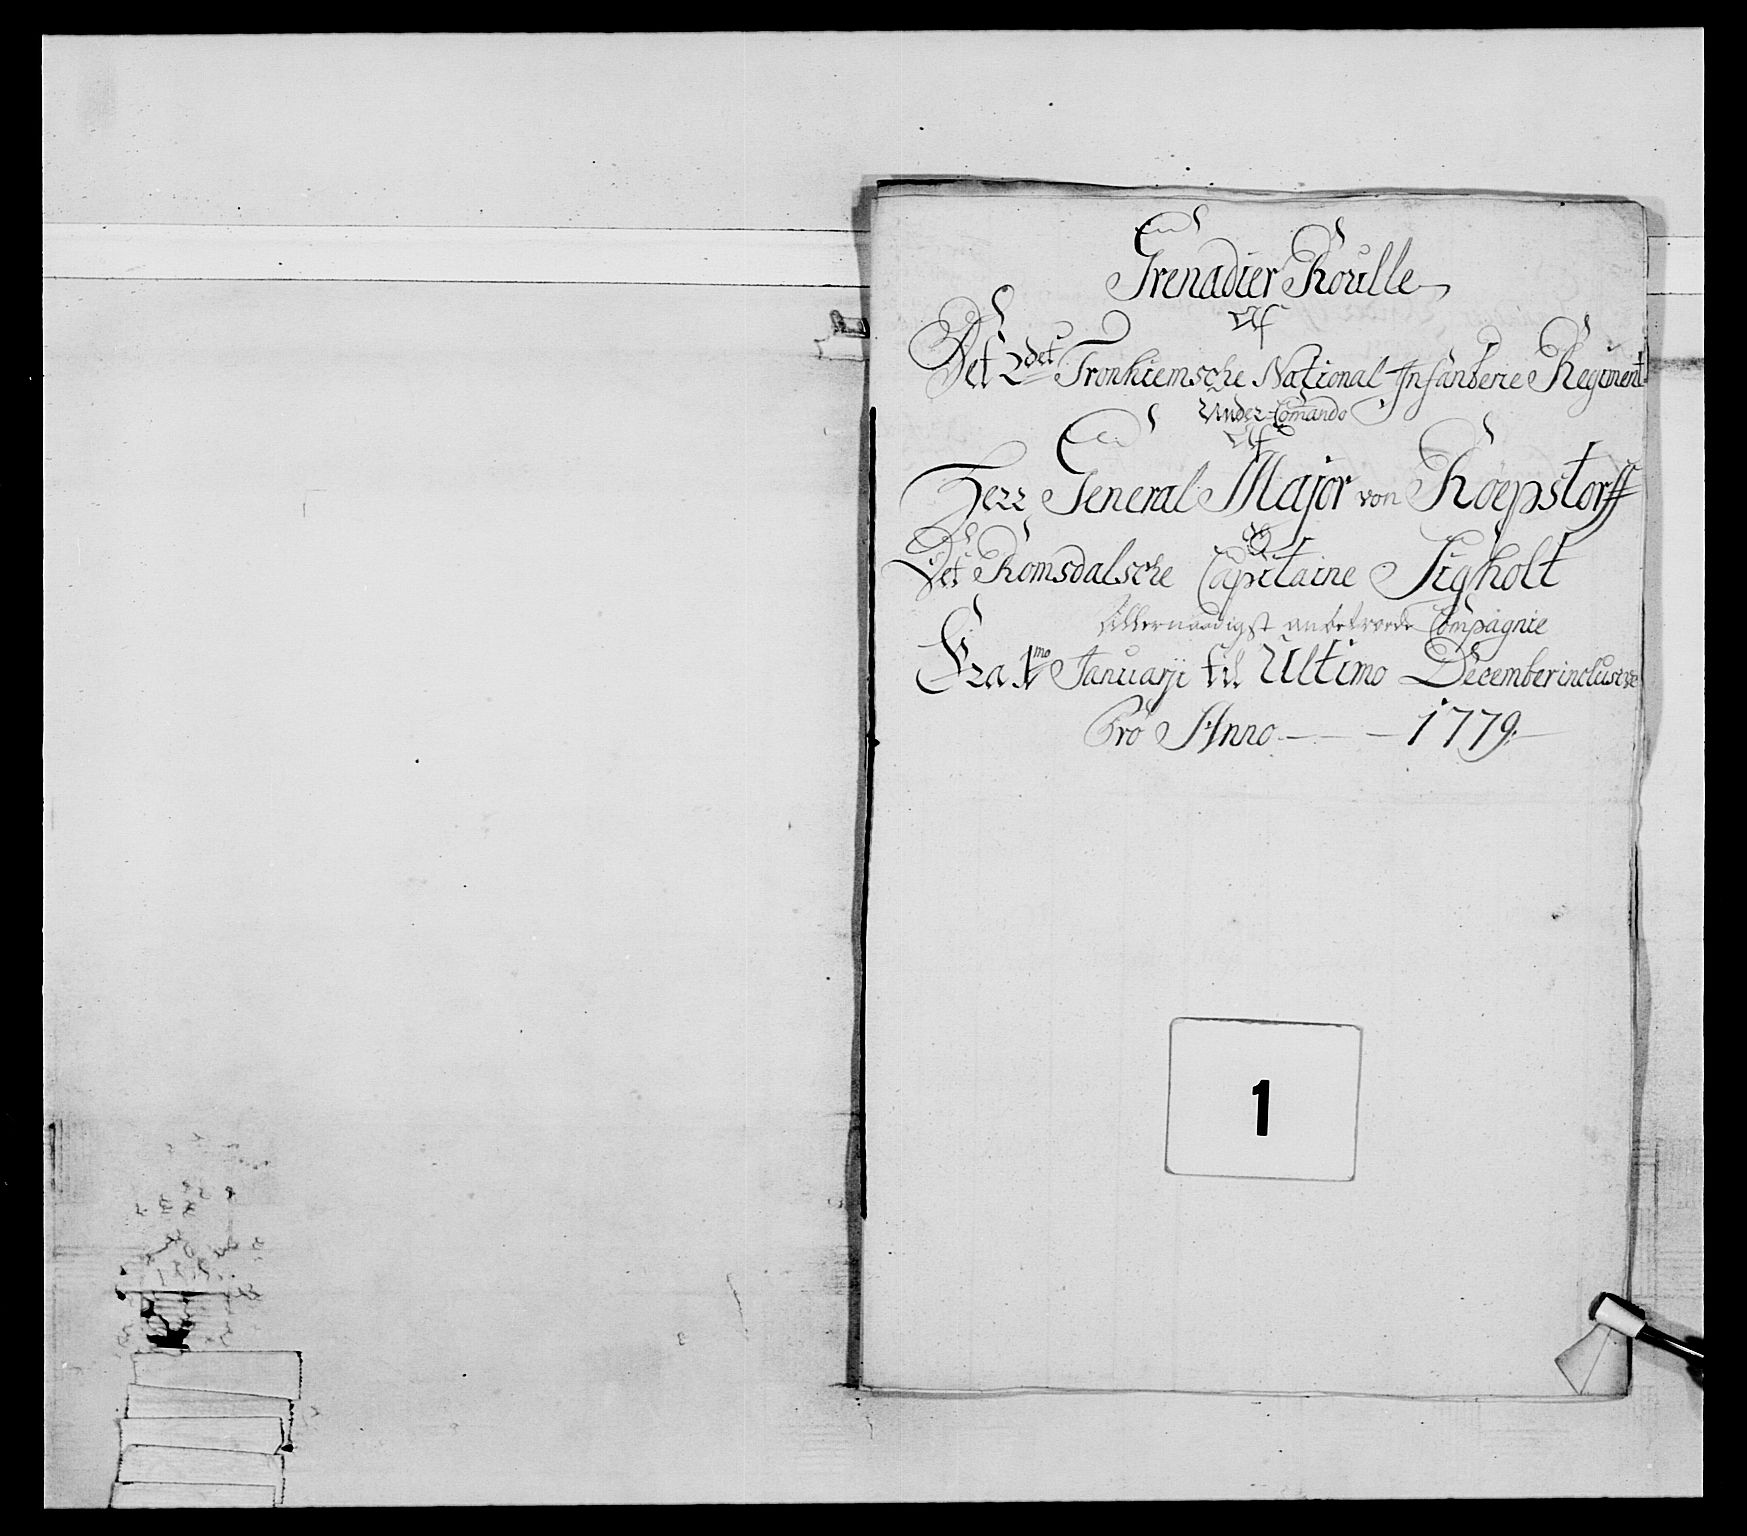 Grenadier Roulle
Af
Det 2det Tronhiemsche National Infanterie Regiment
Under Comando
Af
Herr General Major von Röepstorff
og
Det Romsdalsche Capitaine Sigholt
Allernaadigst anbetroede Compagnie
Fra 1mo Januarji til Ultimo December inclusive
Pro Anno - - 1779.
1